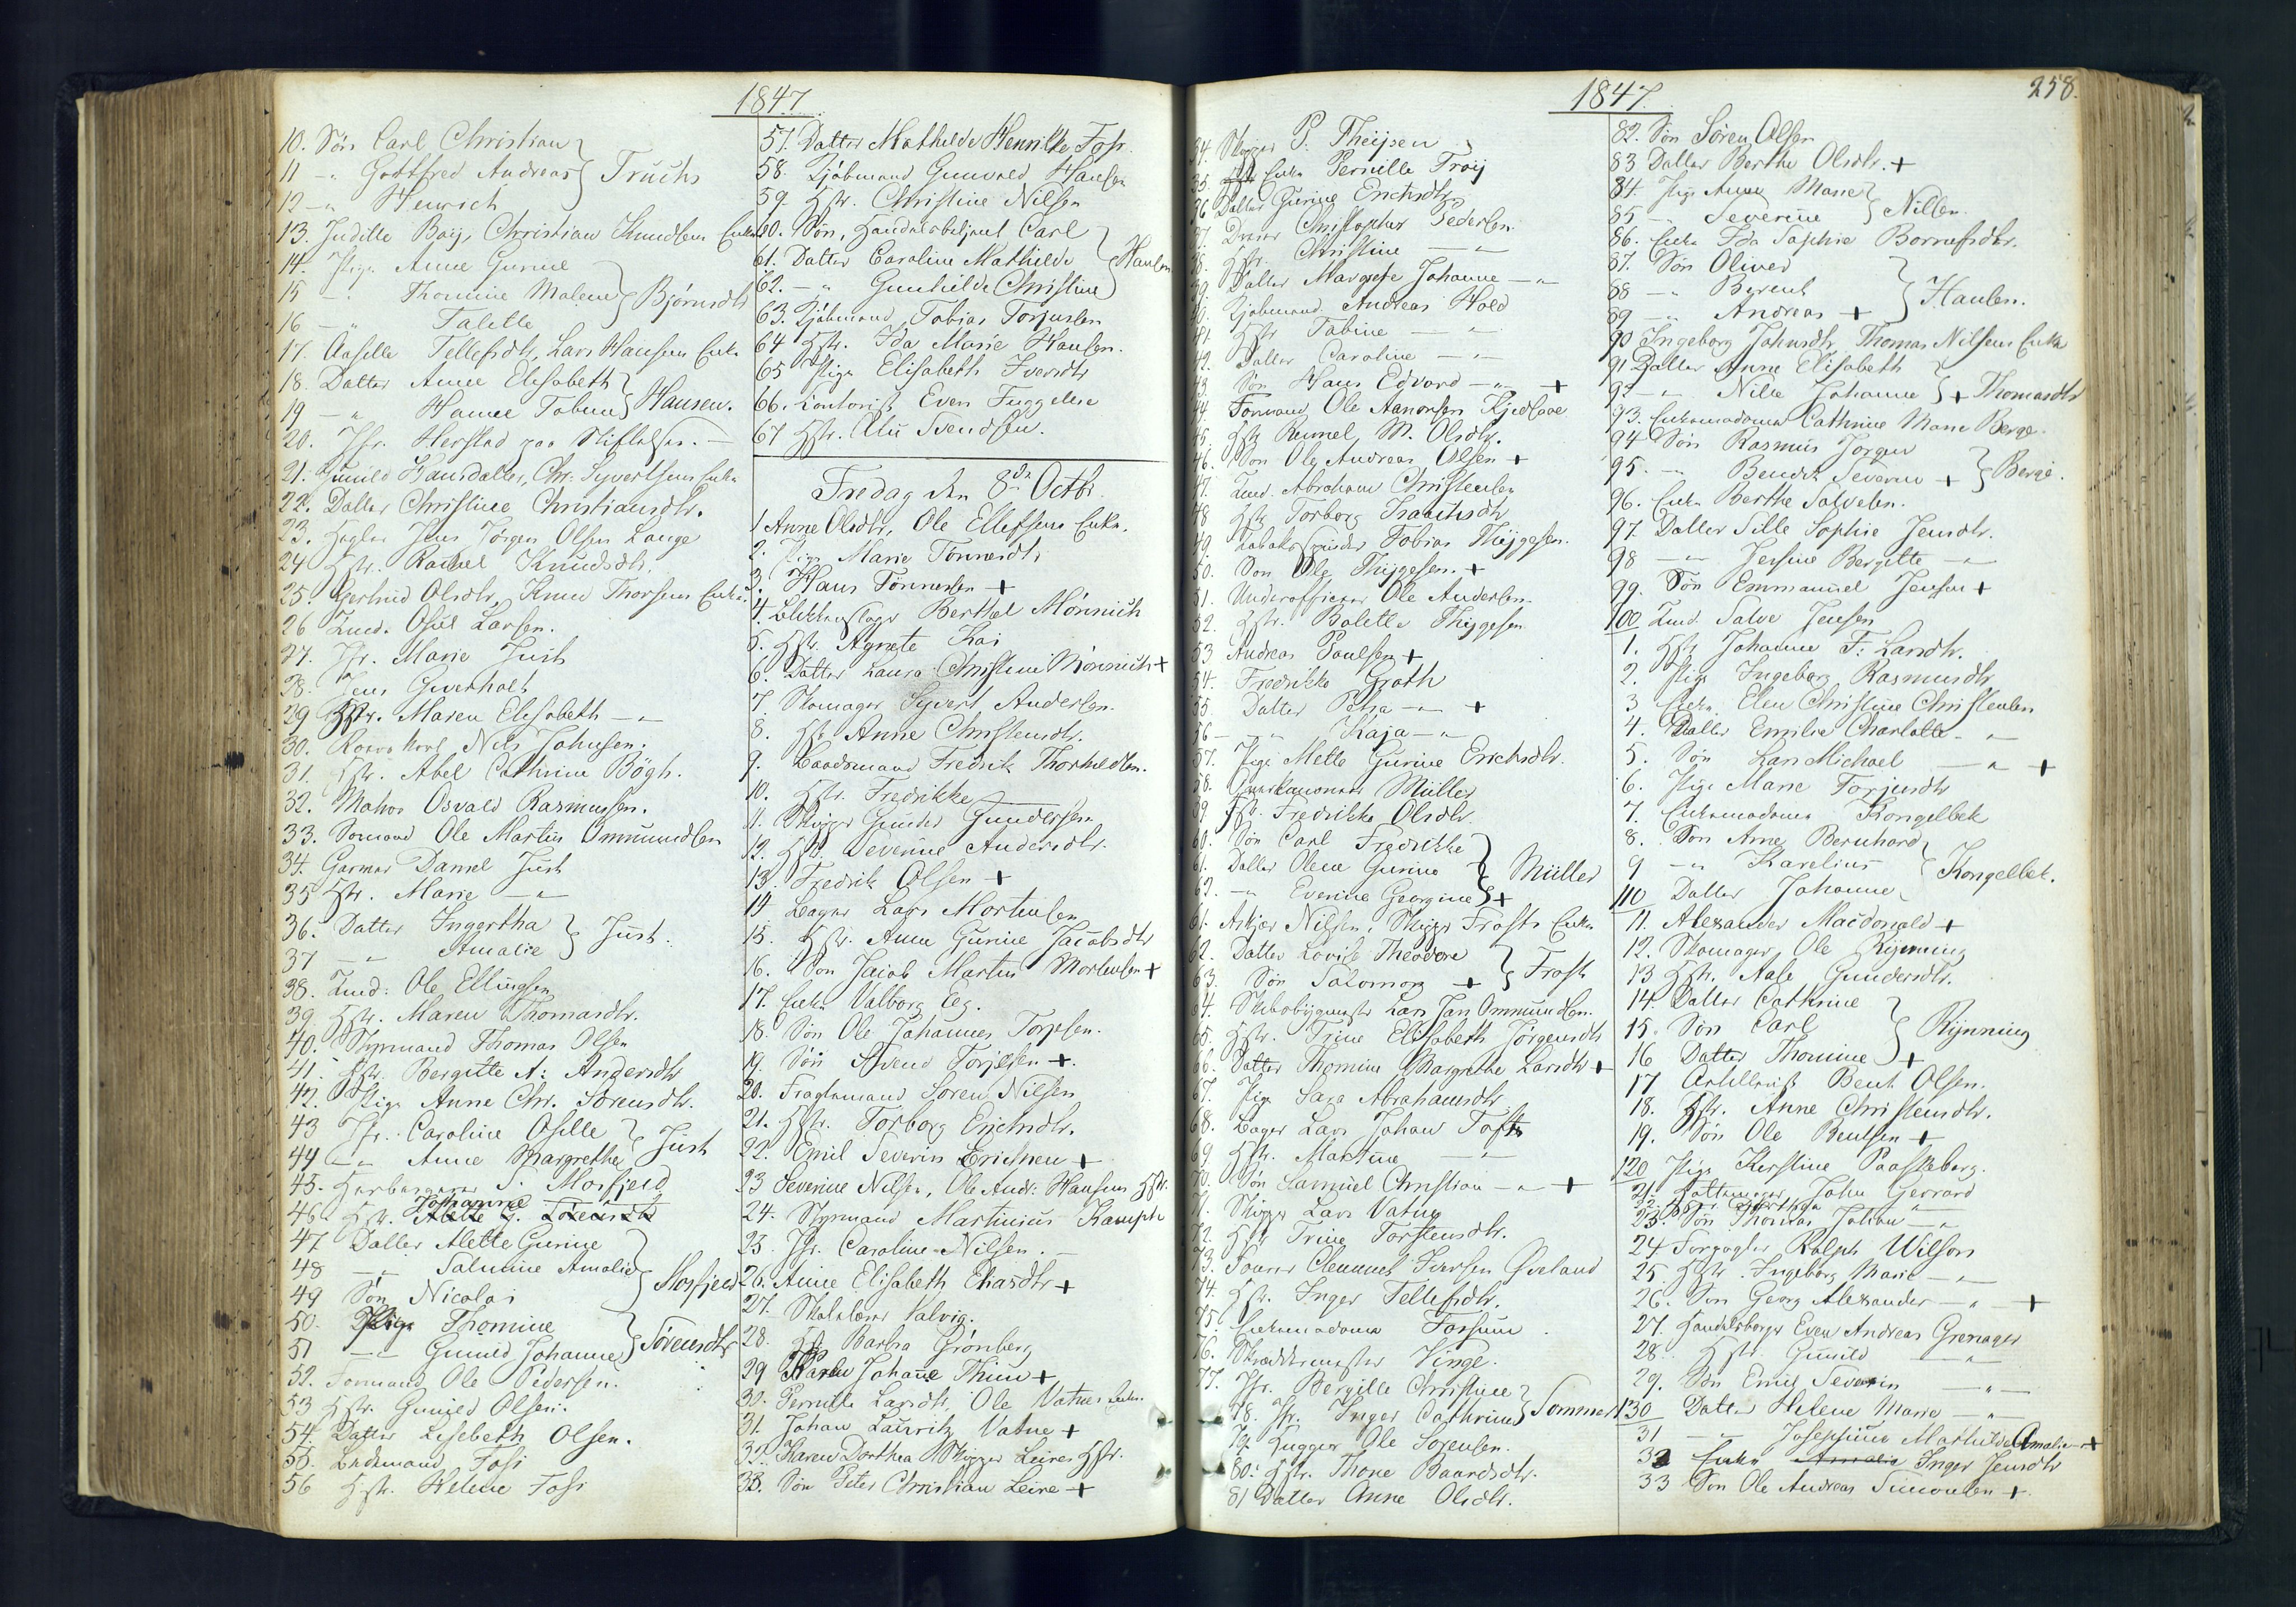 1847
10. Søn Carl Christian
11 -"- Gottfred Andreas } Fruchs
12 -"- Henrich
13. Judille Baij, Christian Knudsens Enke
14. Pige Anne Gurine
15 -"- Thomine Malene } Bjørnsdtr
16 -"- Talette
17. Aaselle Tellefsdtr, Lars Hansens Enke
18. Datter Anne Elisabeth
19 -"- Hanne Tobine } Hansen.
20. Jfr. Herstad paa Stiftelsen. -
21. Gunild Hansdatter, Chr. Syvertsens Enke
22. Datter Christine Christiansdtr.
23. Jens Jørgen Olsen Lange
24 Hstr. Rachel Knudsdtr.
25. Gertrud Olsdtr, Knud Thorsens Enke
26 Tmd. Osul Larsen.
27. Jfr. Marie Just
28. Jens Gverholt
29 Hstr. Maren Elisabeth -"-
30. Nils Johnsen.
31. Hstr. Abel Cathrine Bøgh.
32. Matros Osvald Rasmussen.
33. Sømand Ole Martin Ommundsen
34. Garmer Daniel Just
35 Hstr. Marie -"-
36. Datter Ingertha } Just.
37 -"- Amalie
38. Tmd: Ole Ellingsen
39 Hstr. Maren Thomasdtr.
40. Styrmand Thomas Olsen
41. Hstr. Bergitte A: Andersdtr
42. Pige Anne Chr. Sørensdtr.
43 Jfr. Caroline Oselle } Just
44 -"- Anne Margrethe
45. Herbergerer S. Mosfjeld
46. Hstr. Johanne Alette G. Torensdtr
47 Datter Alette Gurine
48 -"- Saluine Amalie } Mosfjeld
49 Søn Nicolai
50. Pige Thomine
51 -"- Gunild Johanne } Sørensdtr
52. Formand Ole Pedersen.
53 Hstr. Gunild Olsen.
54. Datter Lisebeth Olsen.
55. Foss
56 Hstr. Helene Foss
57. Datter Mathilde Henrikke Foss.
58. Kjøbmand Gunvald Hansen
59 Hstr. Christine Nilsen
60. Søn, Handelsbetjent Carl
61. Datter Caroline Mathilde } Hansen
62. -"- Gunhilde Christine
63. Kjøbmand Tobias Torjussen
64 Hstr. Ida Marie Hansen.
65 Pige Elisabeth Iversdtr
66. Kontorist Even Tuggelise
67 Hstr. Alu Svendsen.
Fredag den 8de Octbr.
1 Anne Olsdtr, Ole Ellefsens Enke.
2. Pige Marie Tønnesdtr
3. Hans Tønnessen +
4. Blikkenslager Berthel Mönnich
5. Hstr. Agnete Kai
6. Datter Laura Christine Mönnich +
7. Skomager Syvert Andersen.
8. Hstr Anne Christensdtr.
9. Baadsmand Fredrik Thorkildsen.
10. Hstr. Fredrikke
11. Skipper Gunder Gundersen
12. Hstr. Severine Andersdtr.
13. Fredrik Olsen +
14 Bager Lars Mortensen
15. Hstr. Anne Gurine Jacobsdtr
16. Søn Jacob Martin Mortensen +
17. Enke Valborg Eeg.
18. Søn Ole Johannes Torjesen.
19. Søn Svend Torjesen +
20. Fragtemand Søren Nilsen
21. Hstr. Torborg Erichsdtr.
22. Emil Severin Erichsen +
23 Severine Nilsen, Ole Andr: Hansens Hstr.
24. Styrmand Martinius Kamphe
25. Jfr. Caroline Nilsen. -
26. Anne Elisabeth Chasdtr +
27. Skolelærer Valvig.
28. Hstr. Barbra Grønberg
29 Karen Johane Thim +
30. Pernille Larsdtr, Ole Vatnes Enke.
31. Johan Lauritz Vatne +
32. Karen Dorthea Skipper Leires Hstr.
33. Søn Peter Christian Leire +
1847.
258.
34. Skipper P. Theijsen
35. Enke Pernille Froij
36 Datter Gurine Erichsdtr
37. Dreier Christopher Pedersen
38. Hstr. Christine -"-
39. Datter Margrete Johanne -"-
40. Kjøbmand Andreas Hold
41. Hstr Tabine -"-
42. Datter Caroline -"-
43 Søn Hans Edvard -"- +
44 Formand Ole Aanonsen Kjedlaae
45. Hstr Remel M. Olsdtr.
46. Søn Ole Andreas Olsen +
47. Tmd. Abraham Christensen
48 Hstr Torborg Isachsdtr
49 Tabakspinder Tobias Thijgesen.
50. Søn Ole Thijgesen. +
51. Underofficer Ole Andersen.
52. Hstr. Bolette Thijgesen
53 Andreas Paulsen +
54. Fredrikke Groth
55 Datter Petra -"- +
56 -"- Kaja -"-
57. Pige Mette Gurine Erichsdtr.
58. Müller
59. Hstr. Fredrikke Olsdtr.
60. Søn Carl Fredrikke
61. Datter Olene Gurine } Müller
62. -"- Everine Georgine +
61. Askjer Nilsen, Skipper Frosts Enke
62. Datter Lovise Theodore } Frost
63. Søn Salomon +
64. Skibsbygmester Lars Jan Ommundsen.
65. Hstr. Trine Elisabeth Jørgensdtr
66. Datter Thomine Margrethe Larsdtr +
67. Pige Sara Abrahamsdtr
68. Bager Lars Johan Toft
69 Hstr. Martine -"-
70. Søn Samuel Christian -"- +
71. Skipper Lars Vatne
72. Hstr Trine Torstensdtr.
73. Tourer Clemmet Iversen Øveland
74. Hstr. Inger Tellefsdtr.
75. Enkemadame Forsum
76. Skræddermester Vinge.
77. Jfr. Bergitte Christine
78. Jfr. Inger Cathrine } Sommer
79. Hugger Ole Sørensen.
80. Hstr. Thone Baardsdtr.
81 Datter Anne Olsdtr.
82. Søn Søren Olsen
83 Datter Berthe Olsdtr. +
84. Pige Anne Marie
85 -"- Severine } Nilsen.
86. Enke Ida Sophie Bornesdtr.
87. Søn Oliver
88 -"- Berent } Hansen.
89 -"- Andreas +
90 Ingeborg Johnsdtr Thomas Nilsens Enke
91 Datter Anne Elisabeth
92 -"- Nille Johanne } + Thomasdtr
93. Enkemadame Cathrine Marie Berge.
94 Søn Rasmus Jørgen
95. -"- Bendik Severin + } Berge.
96. Enke Berthe Salvesen.
97. Datter Sille Sophie Jensdtr.
98 -"- Jensine Bergitte -"-
99. Søn Emmanuel Jensen +
100 Tmd. Salve Jensen
1. Hstr Johanne F: Larsdtr.
2. Pige Ingeborg Rasmusdtr
3 Enke Elen Christine Christensen
4. Datter Emilie Charlotte -"-
5. Søn Lars Michael -"- +
6. Pige Marie Torjusdtr
7. Enkemadame Kongelbek
8. Søn Arne Bernhard
9 -"- Karelius } Kongelbek.
110 Datter Johanne
11. Alexander Macdonald +
12. Skomager Ole Rijnning
13 Hstr. Aase Gundersdtr.
14. Datter Cathrine
15. Søn Carl } Rijnning
16 Datter Thomine +
17 Artillerist Bent Olsen.
18. Hstr. Anne Christensdtr.
19. Søn Ole Bentsen +
120 Pige Kerstine Paaskeberg.
21. Hattemager John Gerrard
22. Hstr. Berthea -"-
23. Søn Thomas Julian -"-
24 Forgylder Ralph Wilson
25. Hstr. Ingeborg Marie -"-
26. Søn Georg Alexander -"- +
27. Handelsborger Even Andreas Grenager
28. Hstr. Gunild -"-
29. Søn Emil Severin -"-
130 Datter Helene Marie -"-
31 -"- Josephine Mathilde Amalie +
32 Enke Amalie Inger Jensdtr
33 Søn Ole Andreas Simonsen +